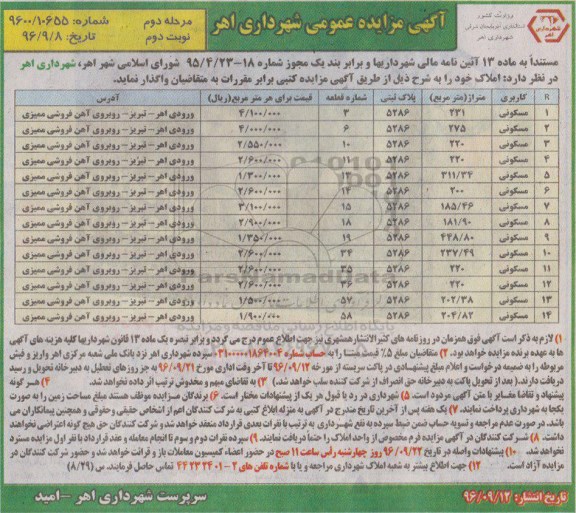 وزارت کشور
استانداری آذربایجان شرقی
شهرداری اهر
آگهی مزایده عمومی شهرداری اهر
مرحله دوم
نوبت دوم
شماره: ۹۶۰۰/۱۰۶۵۵
تاریخ: ۹۶/۹/۸
مستنداً به ماده ۱۳ آئین نامه مالی شهرداریها و برابر بند یک مجوز شماره ۱۸-۹۵/۴/۲۳ شورای اسلامی شهر اهر، شهرداری اهر
در نظر دارد: املاک خود را به شرح ذیل از طریق آگهی مزایده کتبی برابر مقررات به متقاضیان واگذار نماید.
R کاربری متراژ(متر مربع) پلاک ثبتی شماره قطعه قیمت برای هر متر مربع(ریال) آدرس
۱ مسکونی ۲۳۱ ۵۲۸۶ ۳ ۴/۱۰۰/۰۰۰ ورودی اهر- تبریز- روبروی آهن فروشی ممیزی
۲ مسکونی ۲۷۵ ۵۲۸۶ ۶ ۴/۰۰۰/۰۰۰ ورودی اهر- تبریز- روبروی آهن فروشی ممیزی
۳ مسکونی ۲۲۰ ۵۲۸۶ ۱۰ ۲/۵۵۰/۰۰۰ ورودی اهر- تبریز- روبروی آهن فروشی ممیزی
۴ مسکونی ۲۲۰ ۵۲۸۶ ۲/۶۰۰/۰۰۰ ورودی اهر- تبریز- روبروی آهن فروشی ممیزی
۵ مسکونی ۳۱۱/۳۴ ۵۲۸۶ ۱/۳۰۰/۰۰۰ ورودی اهر- تبریز- روبروی آهن فروشی ممیزی
۶ مسکونی ۲۰۰ ۵۲۸۶ ۱۴ ۲/۶۰۰/۰۰۰ ورودی اهر- تبریز- روبروی آهن فروشی ممیزی
۷ مسکونی ۱۸۵/۴۶ ۵۲۸۶ ۱۵ ۳/۱۰۰/۰۰۰ ورودی اهر- تبریز- روبروی آهن فروشی ممیزی
۸ مسکونی ۱۸۱/۹۰ ۵۲۸۶ ۱۸ ۲/۹۰۰/۰۰۰ ورودی اهر- تبریز- روبروی آهن فروشی ممیزی
۹ مسکونی ۴۴۸/۸۰ ۵۲۸۶ ۱۹ ۱/۳۵۰/۰۰۰ ورودی اهر- تبریز- روبروی آهن فروشی ممیزی
۱۰ مسکونی ۲۳۷/۴۹ ۵۲۸۶ ۳۴ ۲/۶۰۰/۰۰۰ ورودی اهر- تبریز- روبروی آهن فروشی ممیزی
۱۱ مسکونی ۲۲۰ ۵۲۸۶ ۳۵ ۲/۶۰۰/۰۰۰ ورودی اهر- تبریز- روبروی آهن فروشی ممیزی
۱۲ مسکونی ۲۲۰ ۵۲۸۶ ۳۶ ۲/۶۰۰/۰۰۰ ورودی اهر- تبریز- روبروی آهن فروشی ممیزی
۱۳ مسکونی ۲۰۲/۳۸ ۵۲۸۶ ۵۷ ۱/۵۰۰/۰۰۰ ورودی اهر- تبریز- روبروی آهن فروشی ممیزی
۱۴ مسکونی ۲۰۴/۸۲ ۵۲۸۶ ۵۸ ۱/۹۰۰/۰۰۰ ورودی اهر- تبریز- روبروی آهن فروشی ممیزی
۱) لازم به ذکر است آگهی فوق همزمان در روزنامه های کثیرالانتشار همشهری نیز جهت اطلاع عموم درج می گردد و برابر تبصره یک ماده ۱۳ قانون شهرداریها کلیه هزینه های آگهی
ها به عهده برنده مزایده خواهد بود. ۲) متقاضیان مبلغ ۵٪ قیمت را به حساب شماره سپرده شهرداری اهر نزد بانک ملی شعبه مرکزی اهر واریز و فیش
مربوطه را به ضمیمه درخواست و اعلام مبلغ پیشنهادی در پاکت سربسته از مورخه ۹۶/۰۹/۱۲ تا آخر وقت اداری مورخ ۹۶/۰۹/۲۱ به جز روزهای تعطیل به دبیرخانه تحویل و رسید
دریافت دارند.( بعد از تحویل پاکت به دبیرخانه حق انصراف از شرکت کننده سلب خواهد شد.) ۳) به تقاضای مبهم و مخدوش ترتیب اثر داده نخواهد شد. ۴) هر گونه
پیشنهاد و تقاضا مغایر با متن آگهی مردود است. ۵) شهرداری در رد یا قبول هر یک از پیشنهادات مختار است. ۶) برندگان مزایده موظف هستند مبلغ مساحت زمین را به صورت
یکجا به شهرداری پرداخت نمایند. ۷) یک هفته پس از آخرین تاریخ مندرج در آگهی به منزله ابلاغ کتبی به شرکت کنندگان اعم از اشخاص حقیقی و حقوقی و همچنین پیمانکاران می
باشد. در صورت عدم مراجعه و تسویه حساب ضمن ضبط سپرده به نفع شهرداری به ترتیب با نفرات بعدی قرارداد منعقد خواهد شد و شرکت کنندگان حق هیچ گونه اعتراضی نخواهند
داشت. ۸) شرکت کنندگان در آگهی مزایده فرم مخصوص از واحد املاک را حتما دریافت نمایند. ۹) سپرده نفرات دوم و سوم تا انجام معامله و عقد قرارداد با نفر اول مزایده مسترد
نخواهد شد. ۱۰) پیشنهادات واصله در تاریخ ۹۶/۰۹/۲۲ روز چهارشنبه رأس ساعت ۱۱ صبح در حضور اعضاء کمیسیون معاملات باز و قرائت خواهد شد و حضور شرکت کنندگان در
مزایده آزاد است. ۱۲) جهت اطلاع بیشتر به شعبه املاک شهرداری مراجعه و یا با شماره تلفن های ۲-۴۴۲۳۲۴۰۱ تماس حاصل فرمایند. س (۸/۲۹)
تاریخ انتشار: ۹۶/۰۹/۱۲
سرپرست شهرداری اهر -امید